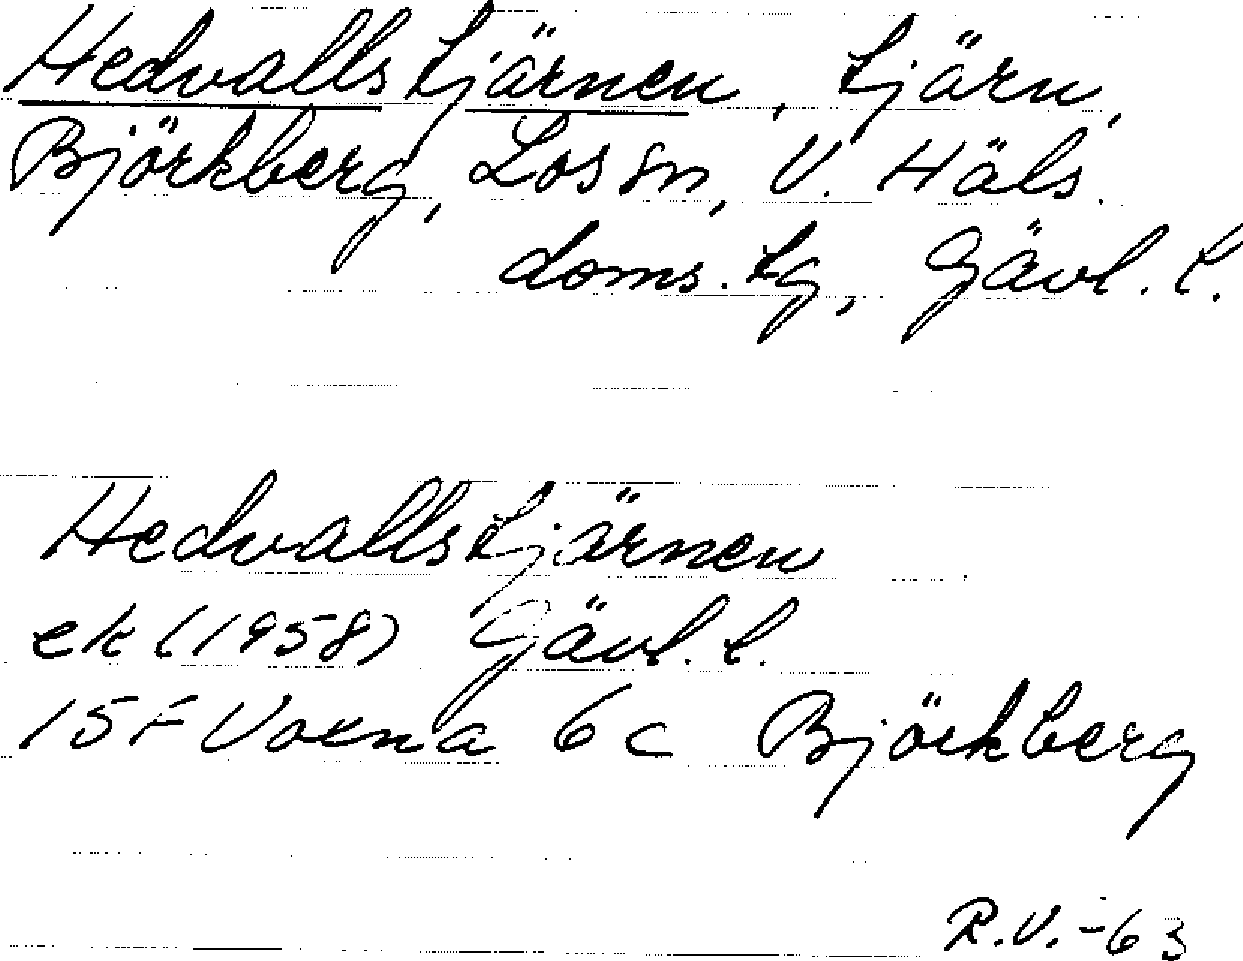 Hedvallstjärnen, tjärn,
Björkberg, Los sn, V. Häls.
doms. tg, Gävl. l.
Hedvallstjärnen
ek (1958) Gävl. l.
15F Voxna 6c Björkberg
R.V.-63